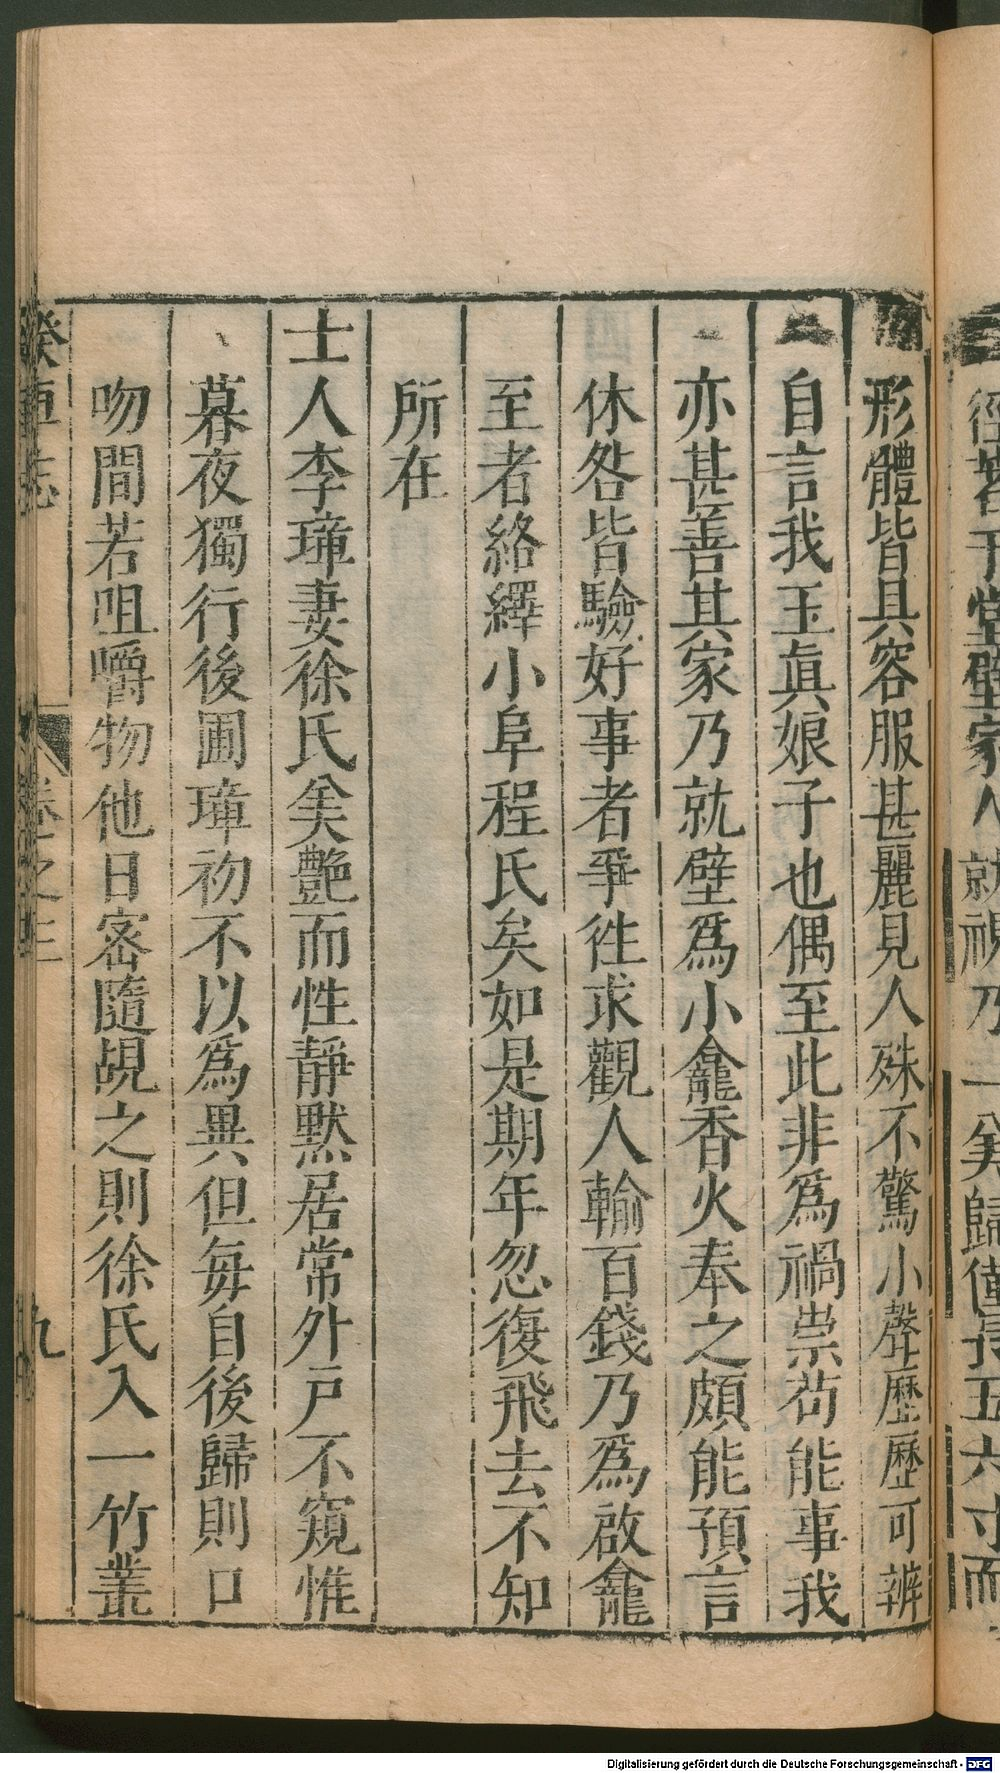 徑著于堂壁家人就視乃一美歸僅長五六寸而
形體皆具容服甚麗見人殊不驚小聲歷歷可辨
自言我玉眞娘子也偶至此非爲禍祟苟能事我
亦甚善其家乃就壁爲小龕香火奉之頗能預言
休咎皆驗好事者爭徃求觀人輸百錢乃爲啟龕
至者絡繹小阜程氏矣如是期年忽復飛去不知
所在
士人李璋妻徐氏美艷而性靜默居常外戸不窺惟
暮夜獨行後圃璋初不以爲異但每自後歸則口
吻間若咀嚼物他日宻隨覘之則徐氏入一竹叢
睽車志
卷之三
九
Digitalisierung gefördert durch die Deutsche Forschungsgemeinschaft - DFG